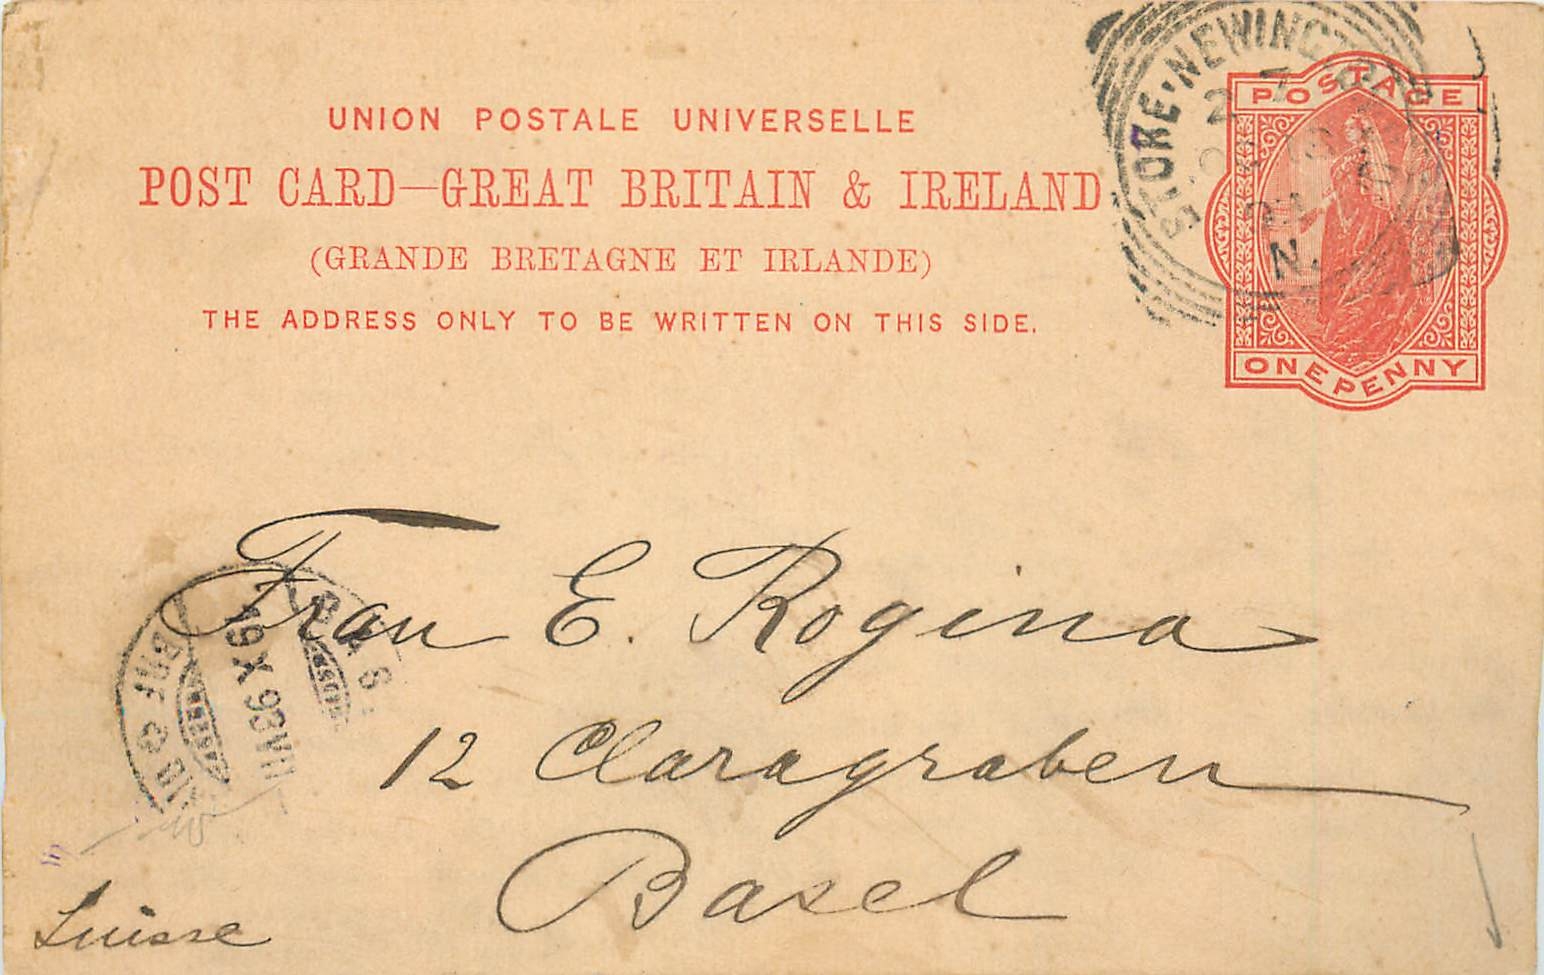 UNION POSTALE UNIVERSELLE
POST CARD—GREAT BRITAIN & IRELAND
(GRANDE BRETAGNE ET IRLANDE)
THE ADDRESS ONLY TO BE WRITTEN ON THIS SIDE.
STOKE·NEWINGT
N.
POSTAGE
ONE PENNY
Frau E. Rogina
12 Claragraben
Basel
Suisse
X 93 VII